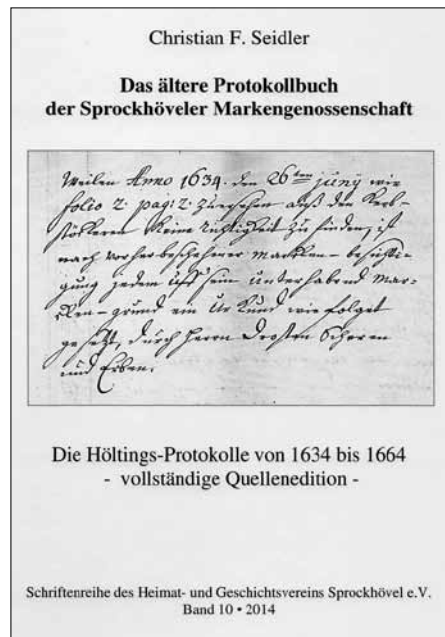 Christian F. Seidler
Das ältere Protokollbuch
der Sprockhöveler Markengenossenschaft
Weilen Anno 1634. den 26ten juny wie
folio 2. pag: 2. zuersehen auß den Kerb-
stöckeren Keine richtigkeit zu finden, ist
nach vorherbeschehener Marcken-besichti-
gung jedem uff sein unterhabend Mar-
cken-grund ein Urkund wie folget
gesetzt, durch herrn Drosten Scheren
und Erben.
Die Höltings-Protokolle von 1634 bis 1664
- vollständige Quellenedition -
Schriftenreihe des Heimat- und Geschichtsvereins Sprockhövel e.V.
Band 10 • 2014